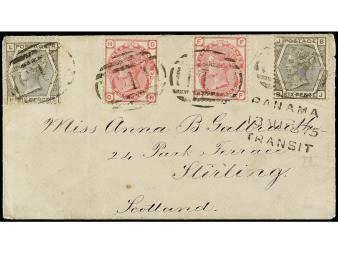 POSTAGE
POSTAGE
SIX PENCE
SIX PENCE
Miss Anna B
PANAMA
TRANSIT
24 Park Terrace
Stirling
Scotland.